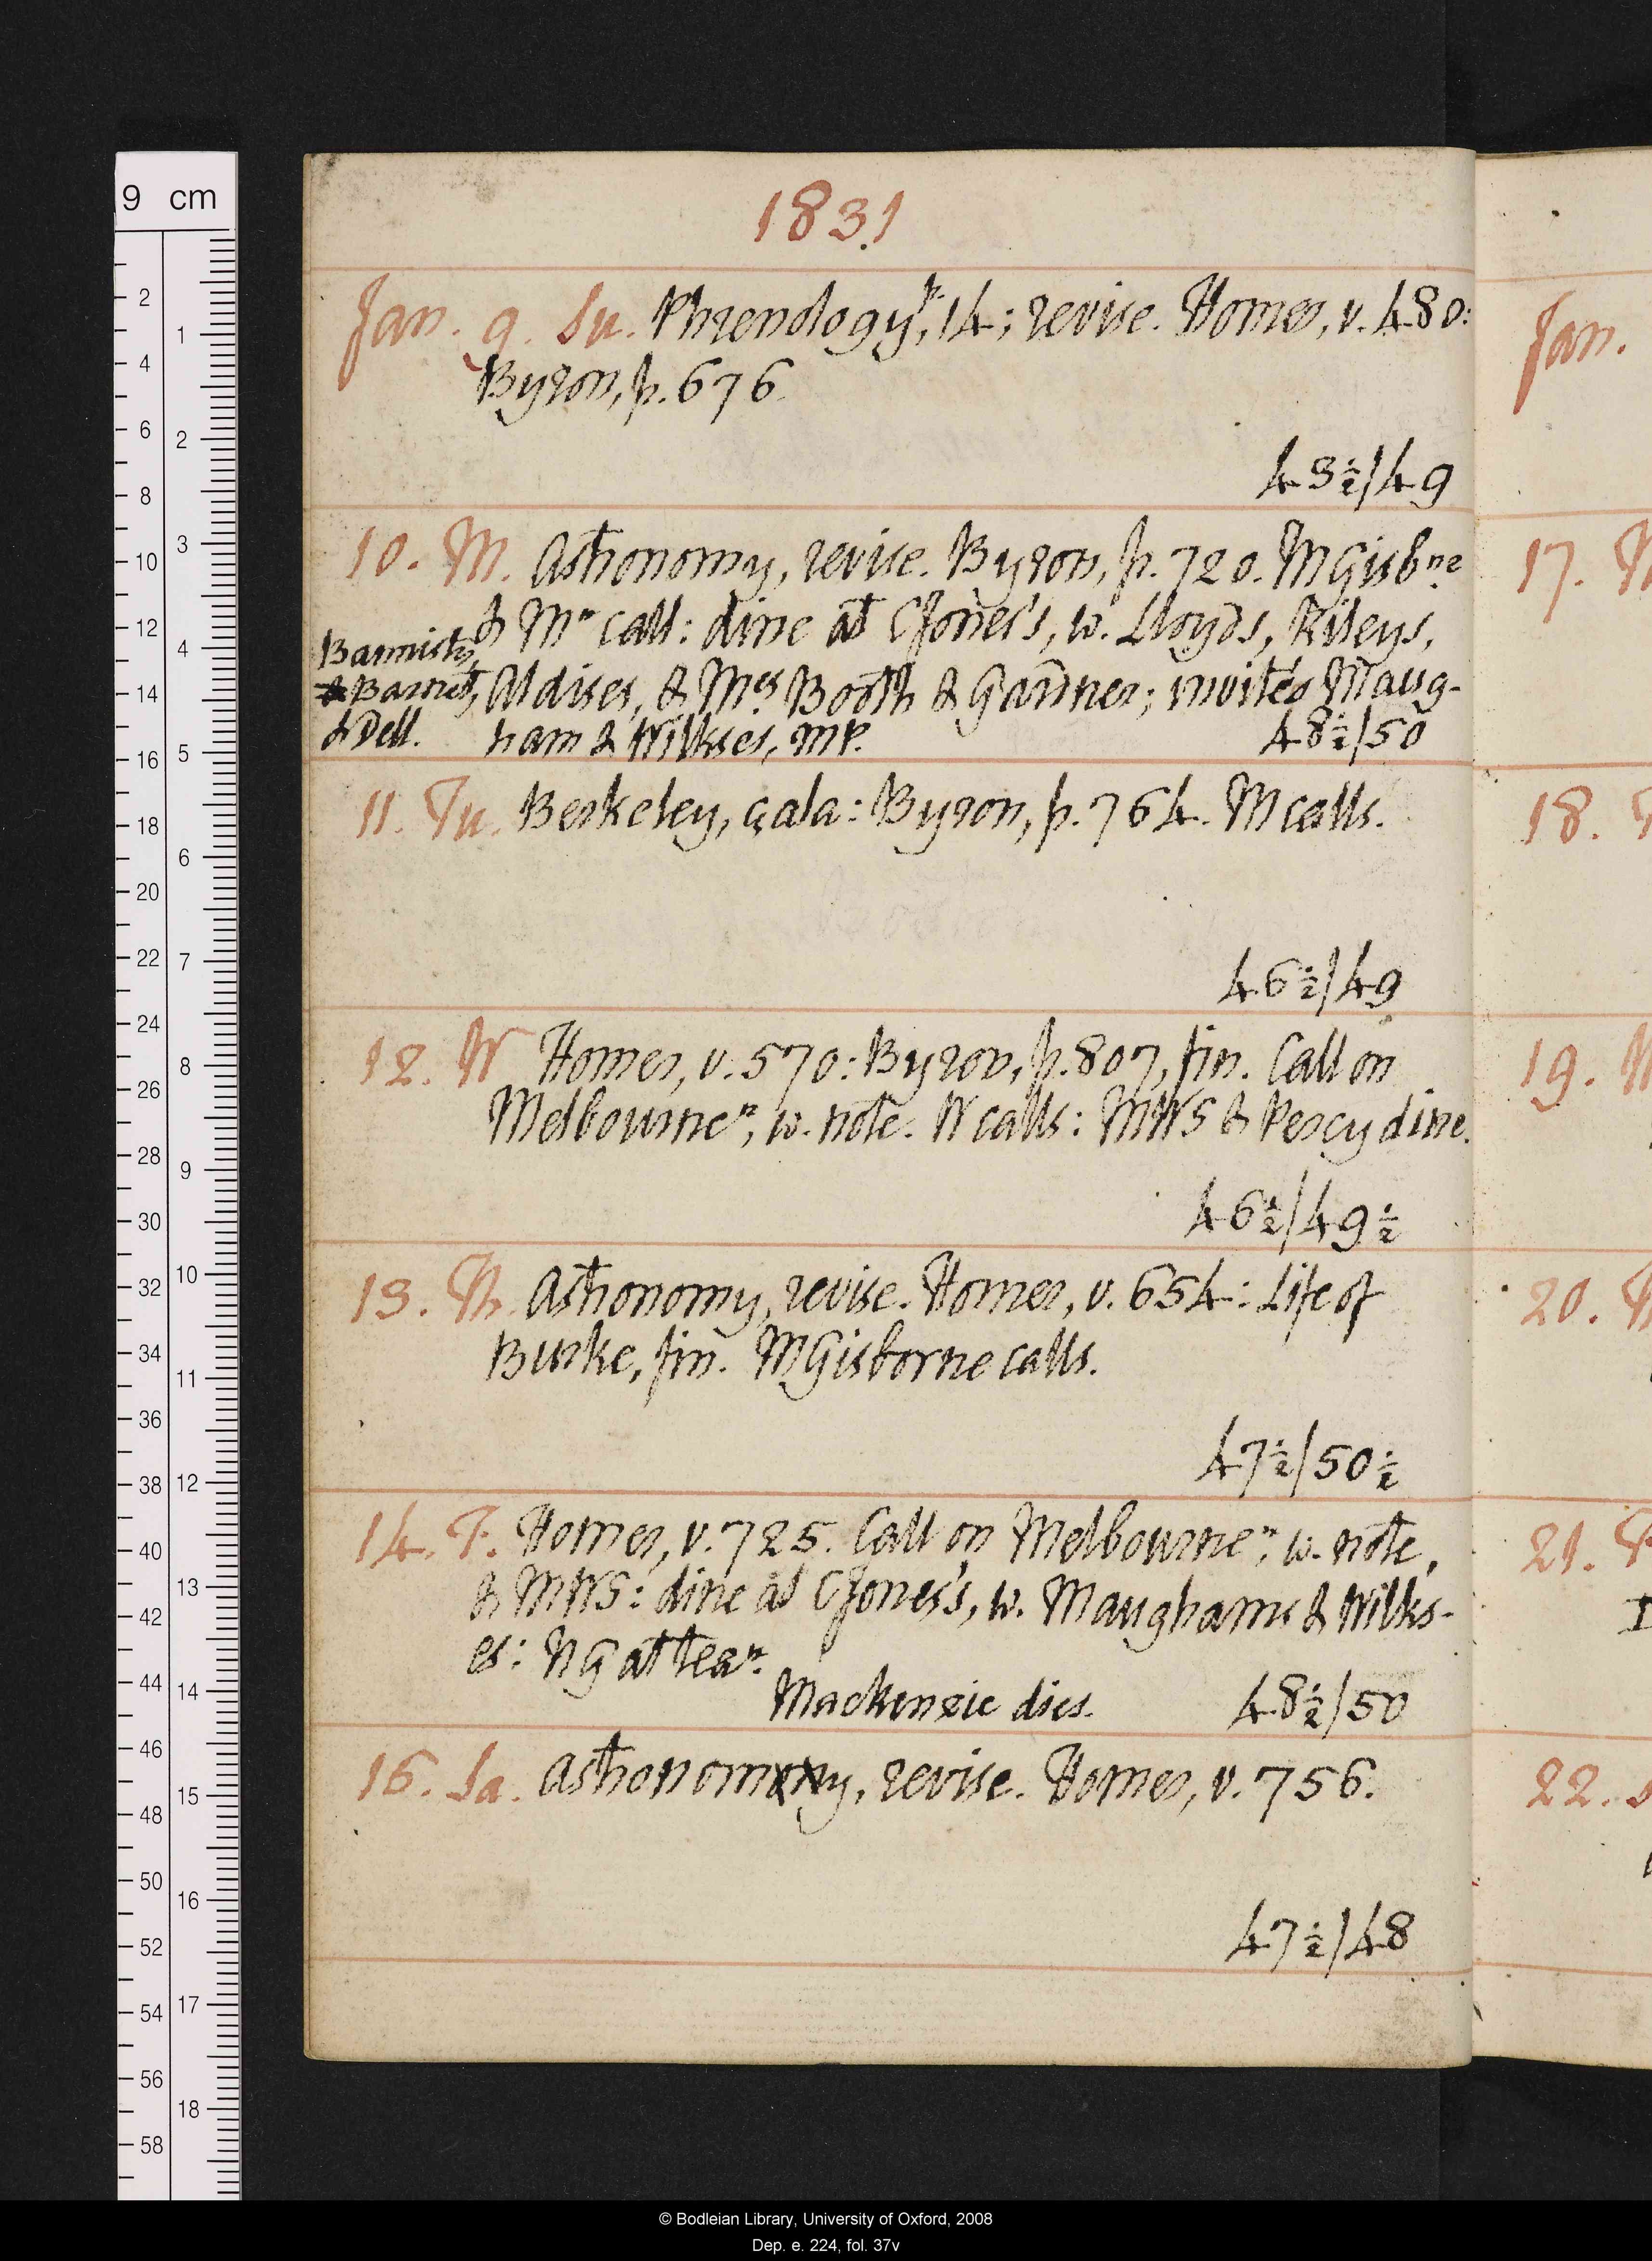 1831
Jan. 9. Su. Phrenology, 14; revise. Homer, v. 480:
Byron, p. 676.
43½/49
10. M. Astronomy, revise. Byron, p. 720. M Gisbne
& Mr call: dine at CJones's, w. Lloyds, Rileys,
Bannister,
& Barret, Aldises, & Mes Booth & Gardner; invités Maug-
& Dell. ham & Wilkses, MP. 48½/50
11. Tu. Berkeley, çala: Byron, p. 764. M calls.
46½/49
12. W Homer, v. 570: Byron, p. 807, fin. Call on
Melbourne n, w. note. W calls: MWS & Percy dine.
46½/49½
13. Th. Astronomy, revise. Homer, v. 654: Life of
Burke, fin. M Gisborne calls.
47½/50½
14. F. Homer, v. 725. Call on Melbourne n, w. note,
& MWS: dine at CJones's, w. Maughams & Wilks-
es: NG at tea n.
Mackenzie dies. 48½/50
15. Sa. Astronomy, revise. Homer, v. 756.
47½/48
Jan.
17.
18.
19.
20.
21.
22.
9 cm
2
4
6
8
10
12
14
16
18
20
22
24
26
28
30
32
34
36
38
40
42
44
46
48
50
52
54
56
58
1
2
3
4
5
6
7
8
9
10
11
12
13
14
15
16
17
18
© Bodleian Library, University of Oxford, 2008
Dep. e. 224, fol. 37v